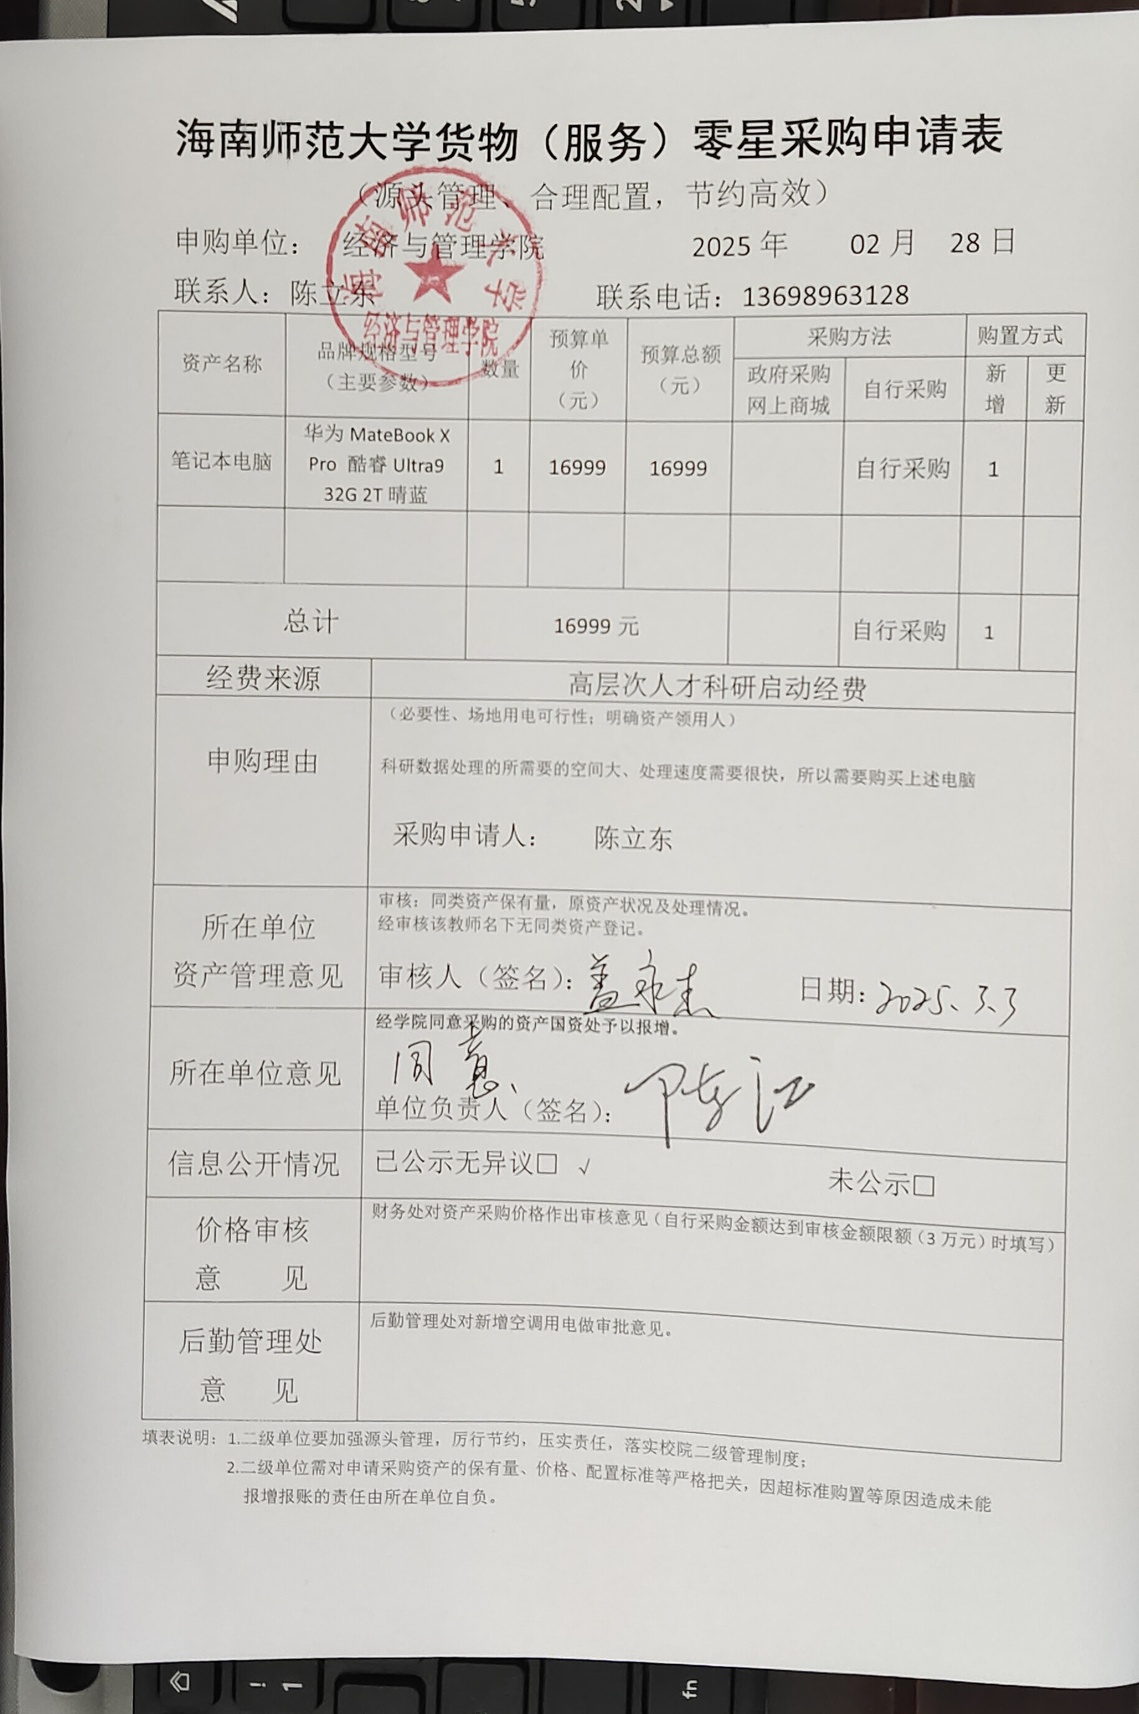 海南师范大学货物（服务）零星采购申请表
（源头管理、合理配置，节约高效）
申购单位： 经济与管理学院 2025 年 02 月 28 日
联系人：陈立东 联系电话：13698963128
海南师范大学
经济与管理学院
资产名称 品牌规格型号（主要参数） 数量 预算单价（元） 预算总额（元） 采购方法 购置方式
政府采购网上商城 自行采购 新增 更新
笔记本电脑 华为 MateBook X Pro 酷睿 Ultra9 32G 2T 晴蓝 1 16999 16999 自行采购 1
总计 16999 元 自行采购 1
经费来源 高层次人才科研启动经费
申购理由
（必要性、场地用电可行性；明确资产领用人）
科研数据处理的所需要的空间大、处理速度需要很快，所以需要购买上述电脑
采购申请人： 陈立东
所在单位
资产管理意见
审核：同类资产保有量，原资产状况及处理情况。
经审核该教师名下无同类资产登记。
审核人（签名）：盖永杰 日期：2025.3.3
所在单位意见
经学院同意采购的资产国资处予以报增。
同意、
单位负责人（签名）：
信息公开情况 已公示无异议□ √ 未公示□
价格审核
意 见
财务处对资产采购价格作出审核意见（自行采购金额达到审核金额限额（3 万元）时填写）
后勤管理处
意 见
后勤管理处对新增空调用电做审批意见。
填表说明：1.二级单位要加强源头管理，厉行节约，压实责任，落实校院二级管理制度；
2.二级单位需对申请采购资产的保有量、价格、配置标准等严格把关，因超标准购置等原因造成未能
报增报账的责任由所在单位自负。
fn
!
1